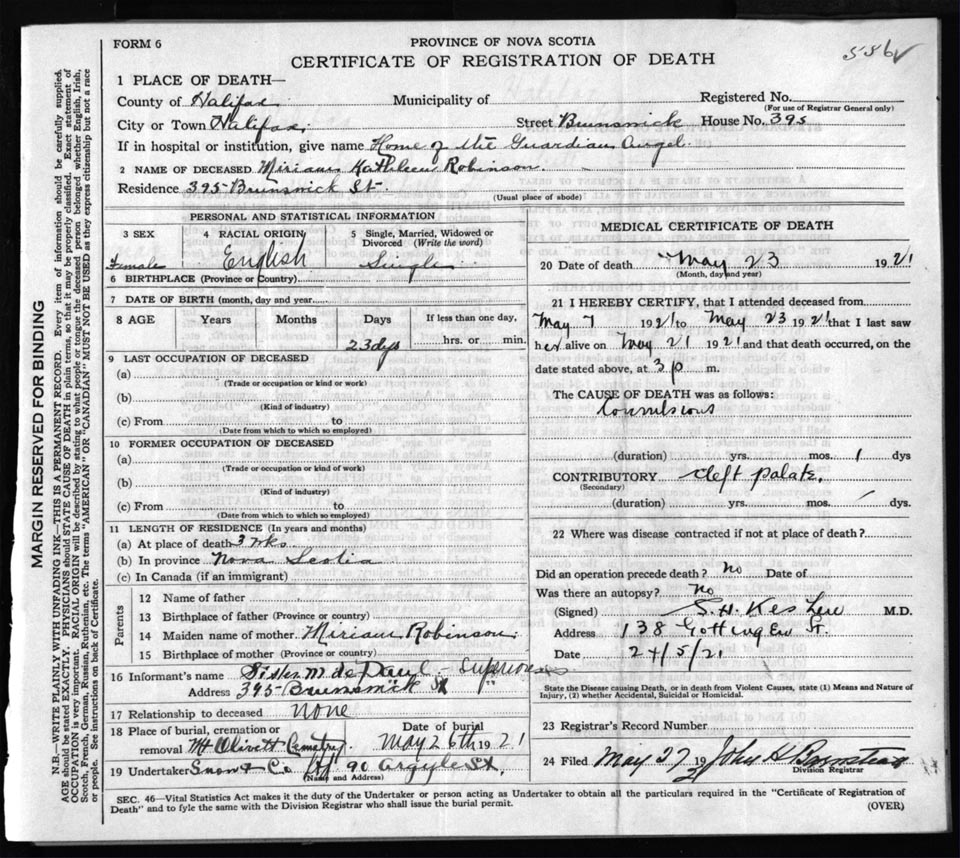 FORM 6
PROVINCE OF NOVA SCOTIA
586
CERTIFICATE OF REGISTRATION OF DEATH
MARGIN RESERVED FOR BINDING
N.B.—WRITE PLAINLY WITH UNFADING INK—THIS IS A PERMANENT RECORD. Every item of information should be carefully supplied.
AGE should be stated EXACTLY. PHYSICIANS should STATE CAUSE OF DEATH in plain terms, so that it may be properly classified. Exact statement of
OCCUPATION is very important. RACIAL ORIGIN will be described by stating to what people or tongue the deceased person belonged, whether English, Irish,
Scotch, French, German, Russian, Ruthenian, etc. The terms "AMERICAN" OR "CANADIAN" MUST NOT BE USED as they express citizenship but not a race
or people. See instructions on back of Certificate.
1 PLACE OF DEATH—
County of Halifax Municipality of Registered No.
(For use of Registrar General only)
City or Town Halifax, Street Brunswick House No. 395
If in hospital or institution, give name Home of the Guardian Angel.
2 NAME OF DECEASED Miriam Kathleen Robinson.
Residence 395 Brunswick St.
(Usual place of abode)
PERSONAL AND STATISTICAL INFORMATION
3 SEX 4 RACIAL ORIGIN 5 Single, Married, Widowed or Divorced (Write the word)
Female English Single
6 BIRTHPLACE (Province or Country)
7 DATE OF BIRTH (month, day and year)
8 AGE Years Months Days If less than one day,
23 dys hrs. or min.
9 LAST OCCUPATION OF DECEASED
(a)
(Trade or occupation or kind of work)
(b)
(Kind of industry)
(c) From to
(Date from which to which so employed)
10 FORMER OCCUPATION OF DECEASED
(a)
(Trade or occupation or kind of work)
(b)
(Kind of industry)
(c) From to
(Date from which to which so employed)
11 LENGTH OF RESIDENCE (In years and months)
(a) At place of death 3 wks
(b) In province Nova Scotia
(c) In Canada (if an immigrant)
Parents
12 Name of father
13 Birthplace of father (Province or country)
14 Maiden name of mother Miriam Robinson.
15 Birthplace of mother (Province or country)
16 Informant's name Sister M. de Paul - Superioress
Address 395 Brunswick St " "
17 Relationship to deceased none
18 Place of burial, cremation or removal Mt Olivett Cemetery. Date of burial May 26th 1921
19 Undertaker Snow & Co 90 Argyle St,
(Name and Address)
MEDICAL CERTIFICATE OF DEATH
20 Date of death May 23 1921
(Month, day and year)
21 I HEREBY CERTIFY, that I attended deceased from
May 7 1921 to May 23 1921 that I last saw
her alive on May 21 1921 and that death occurred, on the
date stated above, at 3 p m.
The CAUSE OF DEATH was as follows:
Convulsions
(duration) yrs. mos. 1 dys
CONTRIBUTORY cleft palate.
(Secondary)
(duration) yrs. mos. dys.
22 Where was disease contracted if not at place of death?
Did an operation precede death? No Date of
Was there an autopsy? No
(Signed) S. H. Keshen M.D.
Address 138 Gottingen St.
Date 24/5/21
State the Disease causing Death, or in death from Violent Causes, state (1) Means and Nature of
Injury, (2) whether Accidental, Suicidal or Homicidal.
23 Registrar's Record Number
24 Filed May 27 19 21 John H Barnstead
Division Registrar
SEC. 46—Vital Statistics Act makes it the duty of the Undertaker or person acting as Undertaker to obtain all the particulars required in the "Certificate of Registration of
Death" and to fyle the same with the Division Registrar who shall issue the burial permit. (OVER)